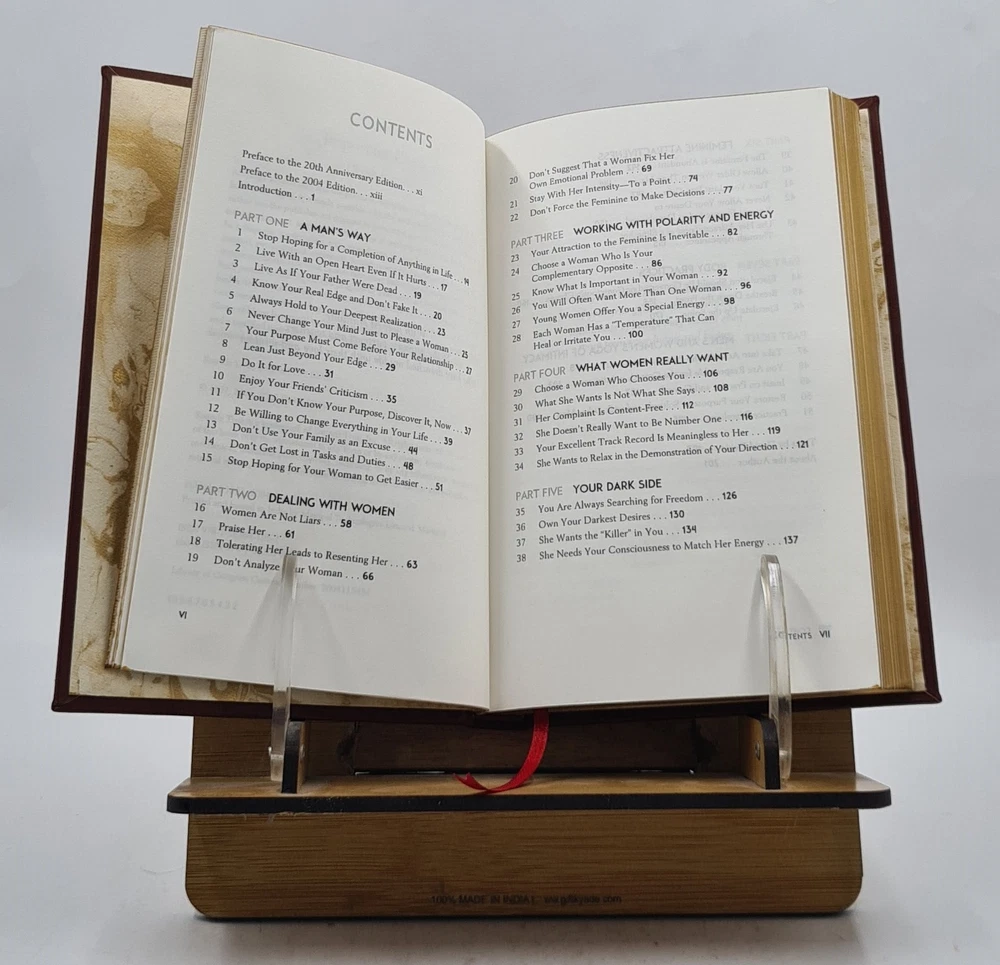 CONTENTS
Preface to the 20th Anniversary Edition. . . xi
Preface to the 2004 Edition. . . xiii
Introduction . . . 1
PART ONE A MAN'S WAY
1 Stop Hoping for a Completion of Anything in Life . . . 14
2 Live With an Open Heart Even If It Hurts . . . 17
3 Live As If Your Father Were Dead . . . 19
4 Know Your Real Edge and Don't Fake It . . . 20
5 Always Hold to Your Deepest Realization . . . 23
6 Never Change Your Mind Just to Please a Woman . . . 25
7 Your Purpose Must Come Before Your Relationship . . . 27
8 Lean Just Beyond Your Edge . . . 29
9 Do It for Love . . . 31
10 Enjoy Your Friends' Criticism . . . 35
11 If You Don't Know Your Purpose, Discover It, Now . . . 37
12 Be Willing to Change Everything in Your Life . . . 39
13 Don't Use Your Family as an Excuse . . . 44
14 Don't Get Lost in Tasks and Duties . . . 48
15 Stop Hoping for Your Woman to Get Easier . . . 51
PART TWO DEALING WITH WOMEN
16 Women Are Not Liars . . . 58
17 Praise Her . . . 61
18 Tolerating Her Leads to Resenting Her . . . 63
19 Don't Analyze Your Woman . . . 66
VI
20 Don't Suggest That a Woman Fix Her
Own Emotional Problem . . . 69
21 Stay With Her Intensity—To a Point . . . 74
22 Don't Force the Feminine to Make Decisions . . . 77
PART THREE WORKING WITH POLARITY AND ENERGY
23 Your Attraction to the Feminine Is Inevitable . . . 82
24 Choose a Woman Who Is Your
Complementary Opposite . . . 86
25 Know What Is Important in Your Woman . . . 92
26 You Will Often Want More Than One Woman . . . 96
27 Young Women Offer You a Special Energy . . . 98
28 Each Woman Has a "Temperature" That Can
Heal or Irritate You . . . 100
PART FOUR WHAT WOMEN REALLY WANT
29 Choose a Woman Who Chooses You . . . 106
30 What She Wants Is Not What She Says . . . 108
31 Her Complaint Is Content-Free . . . 112
32 She Doesn't Really Want to Be Number One . . . 116
33 Your Excellent Track Record Is Meaningless to Her . . . 119
34 She Wants to Relax in the Demonstration of Your Direction . . . 121
PART FIVE YOUR DARK SIDE
35 You Are Always Searching for Freedom . . . 126
36 Own Your Darkest Desires . . . 130
37 She Wants the "Killer" in You . . . 134
38 She Needs Your Consciousness to Match Her Energy . . . 137
CONTENTS VII
100% MADE IN INDIA